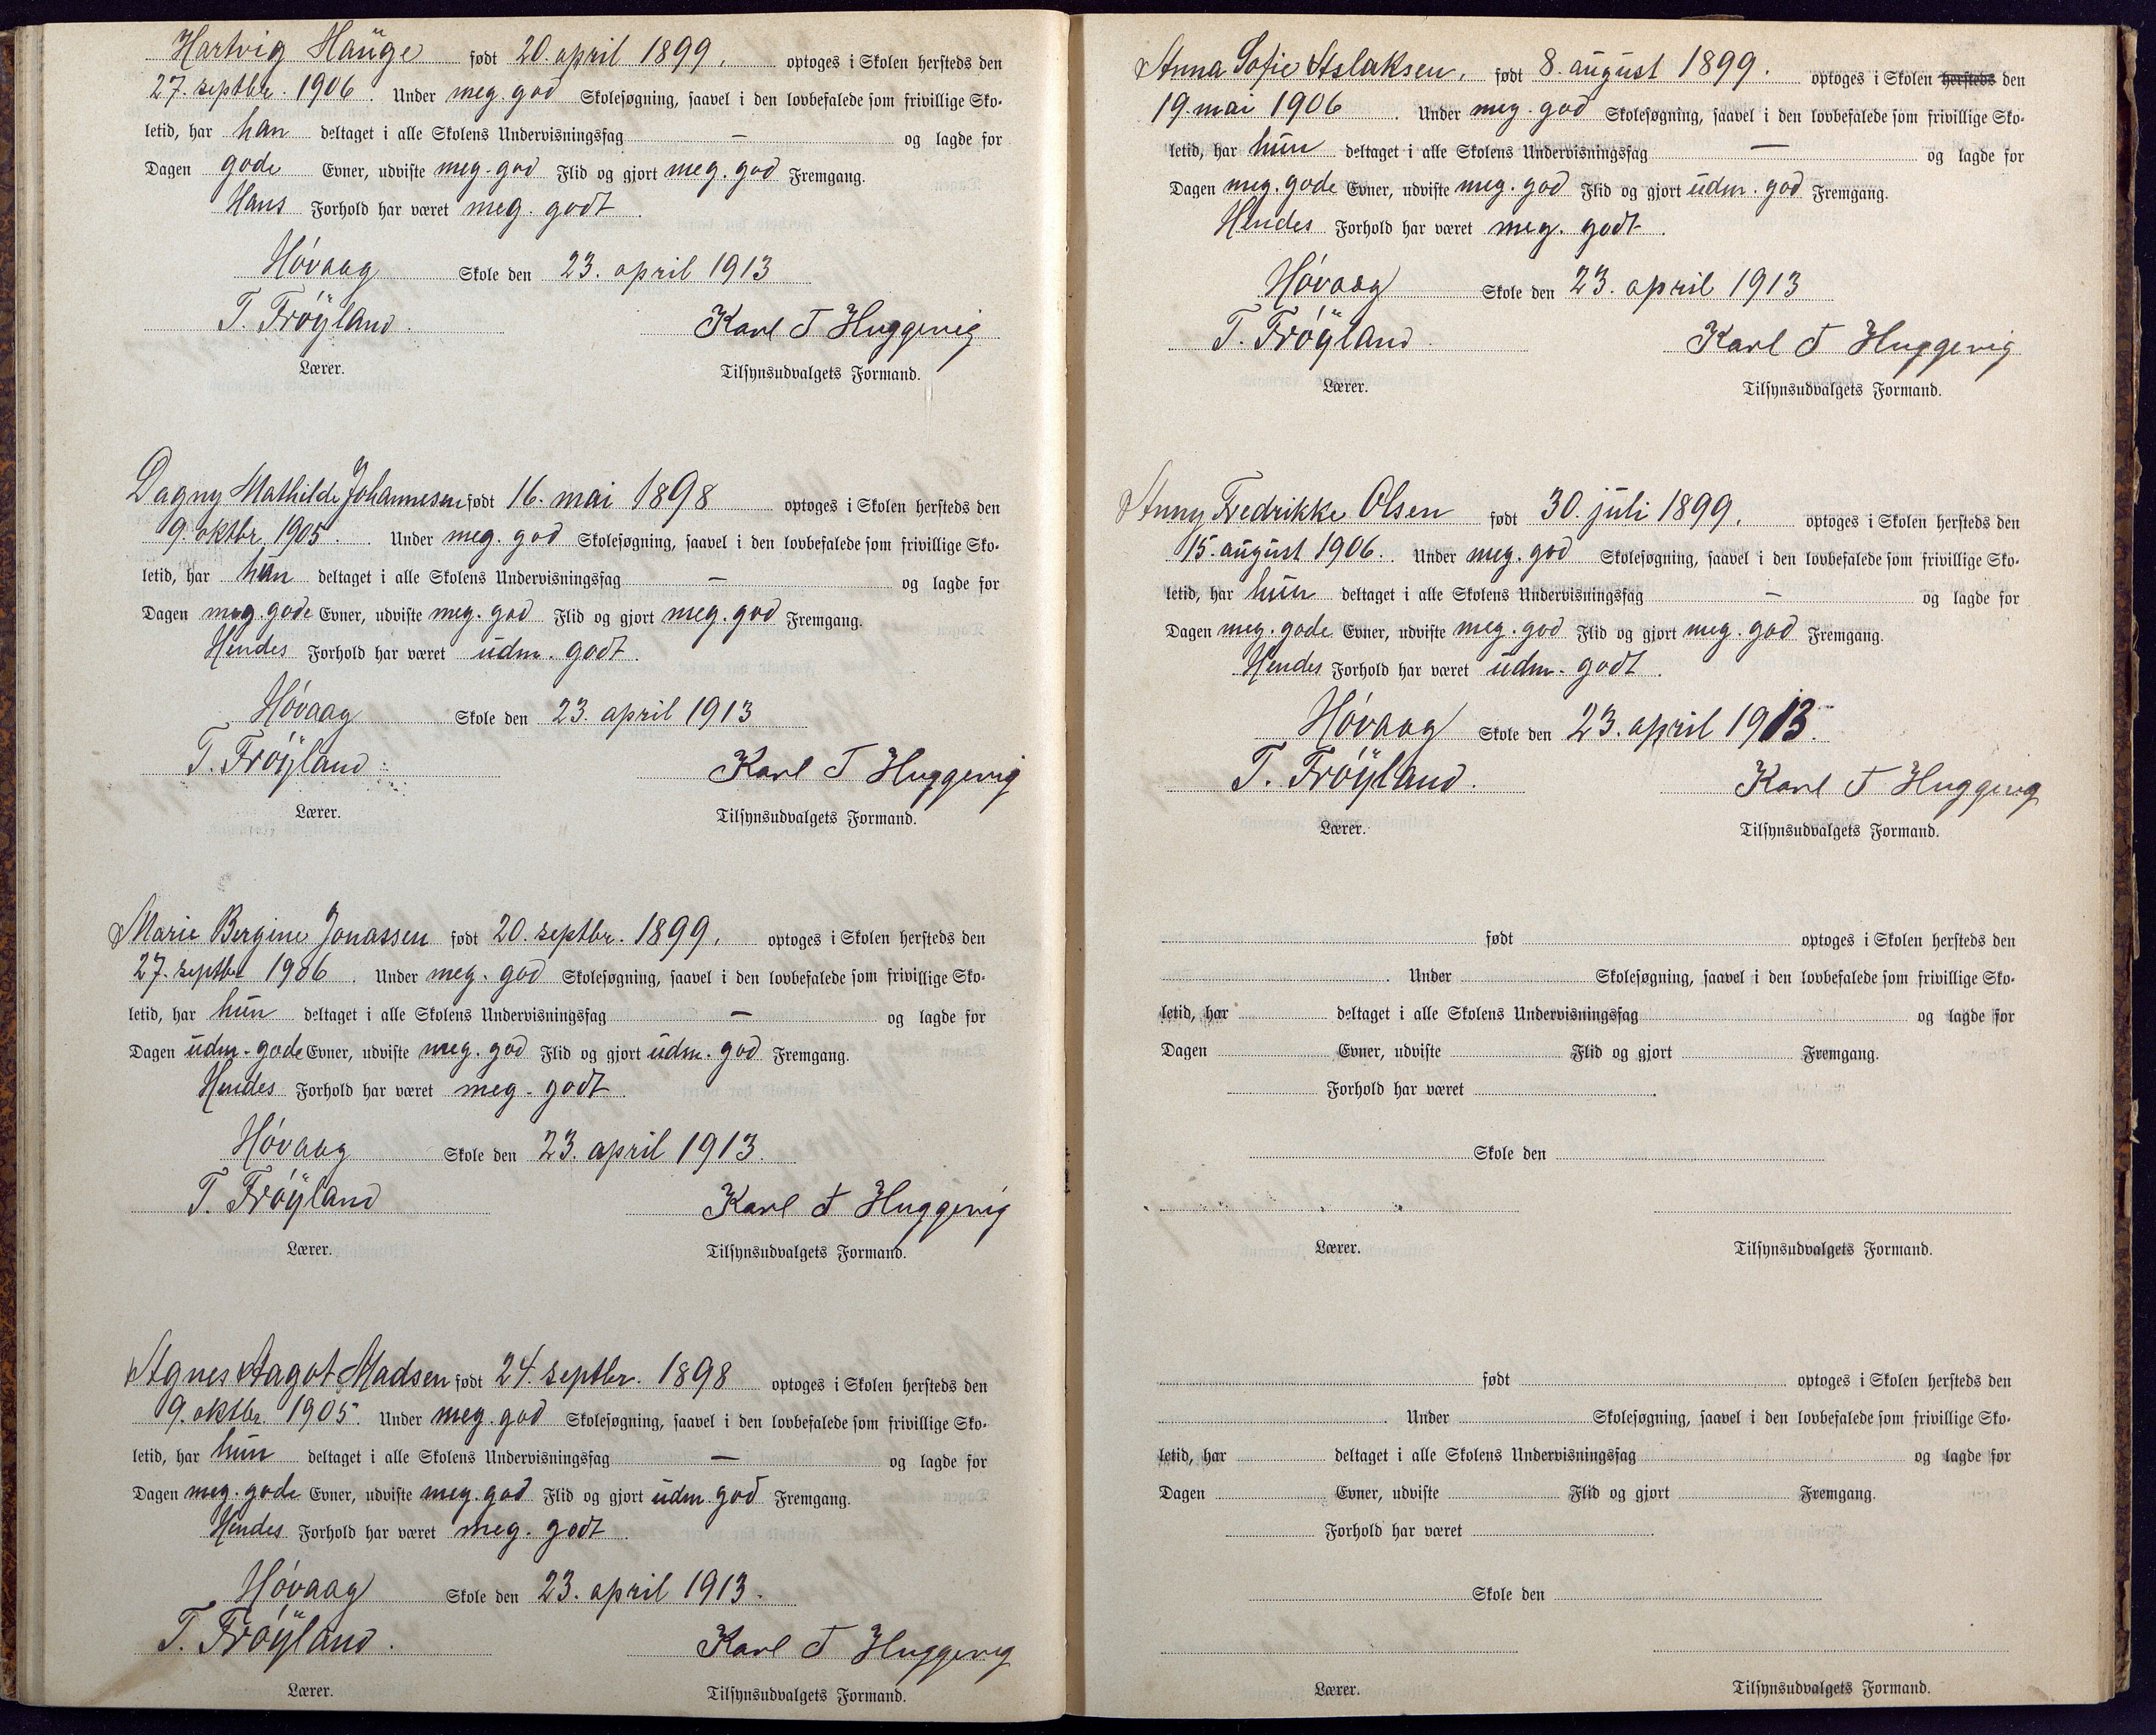 Hartvig Hauge født 20. april 1899. optoges i Skolen hersteds den
27. septbr. 1906. Under meg. god Skolesøgning, saavel i den lovbefalede som frivillige Sko-
letid, har han deltaget i alle Skolens Undervisningsfag — og lagde for
Dagen gode Evner, udviste meg. god Flid og gjort meg. god Fremgang.
Hans Forhold har været meg. godt.
Høvaag Skole den 23. april 1913
T. Frøyland. Karl T Huggevig
Lærer. Tilsynsudvalgets Formand.
Dagny Mathilde Johannesen født 16. mai 1898 optoges i Skolen hersteds den
9. oktbr. 1905. Under meg. god Skolesøgning, saavel i den lovbefalede som frivillige Sko-
letid, har han deltaget i alle Skolens Undervisningsfag — og lagde for
Dagen meg. gode Evner, udviste meg. god Flid og gjort meg. god Fremgang.
Hendes Forhold har været udm. godt.
Høvaag Skole den 23. april 1913
T. Frøyland. Karl T Huggevig
Lærer. Tilsynsudvalgets Formand.
Marie Bergine Jonassen født 20. septbr. 1899. optoges i Skolen hersteds den
27. septbr 1906. Under meg. god Skolesøgning, saavel i den lovbefalede som frivillige Sko-
letid, har hun deltaget i alle Skolens Undervisningsfag — og lagde for
Dagen udm. gode Evner, udviste meg. god Flid og gjort udm. god Fremgang.
Hendes Forhold har været meg. godt.
Høvaag Skole den 23. april 1913.
T. Frøyland Karl T Huggevig
Lærer. Tilsynsudvalgets Formand.
Agnes Aagot Madsen født 24. septbr. 1898 optoges i Skolen hersteds den
9. oktbr. 1905. Under meg. god Skolesøgning, saavel i den lovbefalede som frivillige Sko-
letid, har hun deltaget i alle Skolens Undervisningsfag — og lagde for
Dagen meg. gode Evner, udviste meg. god Flid og gjort udm. god Fremgang.
Hendes Forhold har været meg. godt.
Høvaag Skole den 23. april 1913.
T. Frøyland. Karl T Huggevig
Lærer. Tilsynsudvalgets Formand.
Anna Sofie Aslaksen, født 8. august 1899. optoges i Skolen hersteds den
19. mai 1906. Under meg. god Skolesøgning, saavel i den lovbefalede som frivillige Sko-
letid, har hun deltaget i alle Skolens Undervisningsfag — og lagde for
Dagen meg. gode Evner, udviste meg. god Flid og gjort udm. god Fremgang.
Hendes Forhold har været meg. godt.
Høvaag Skole den 23. april 1913
T. Frøyland. Karl T Huggevig
Lærer. Tilsynsudvalgets Formand.
Anny Fredrikke Olsen født 30. juli 1899. optoges i Skolen hersteds den
15. august 1906. Under meg. god Skolesøgning, saavel i den lovbefalede som frivillige Sko-
letid, har hun deltaget i alle Skolens Undervisningsfag — og lagde for
Dagen meg. gode Evner, udviste meg. god Flid og gjort meg. god Fremgang.
Hendes Forhold har været udm. godt.
Høvaag Skole den 23. april 1913.
T. Frøyland. Karl T Huggevig
Lærer. Tilsynsudvalgets Formand.
født optoges i Skolen hersteds den
. Under Skolesøgning, saavel i den lovbefalede som frivillige Sko-
letid, har deltaget i alle Skolens Undervisningsfag og lagde for
Dagen Evner, udviste Flid og gjort Fremgang.
Forhold har været .
Skole den
Lærer. Tilsynsudvalgets Formand.
født optoges i Skolen hersteds den
. Under Skolesøgning, saavel i den lovbefalede som frivillige Sko-
letid, har deltaget i alle Skolens Undervisningsfag og lagde for
Dagen Evner, udviste Flid og gjort Fremgang.
Forhold har været .
Skole den
Lærer. Tilsynsudvalgets Formand.